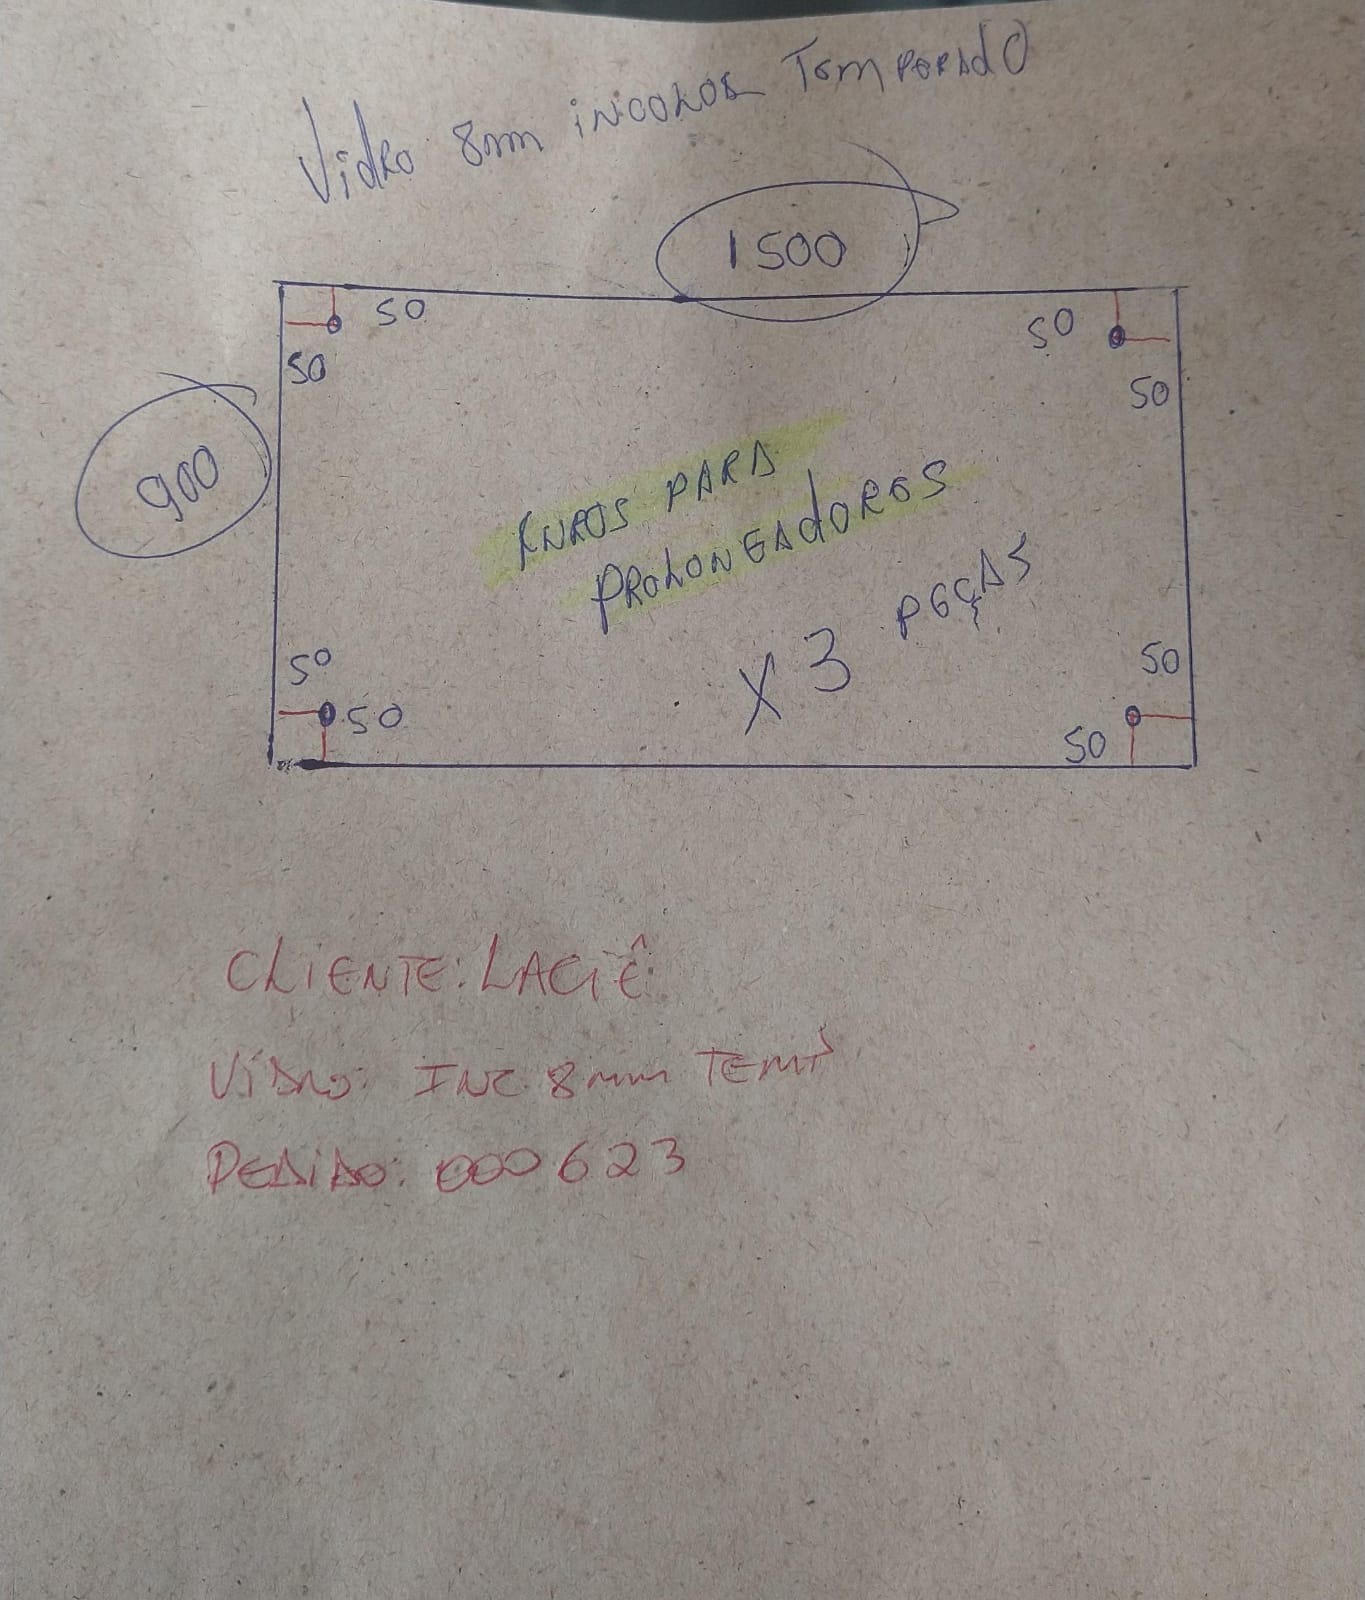 Vidro 8mm incolor Temperado
1500
50
50
50
50
900
FUROS PARA
PROLONGADORES
X 3 PEÇAS
50
50
50
50
CLIENTE: LACIÊ
VIDRO: INC 8mm TEMP
PEDIDO: 000623